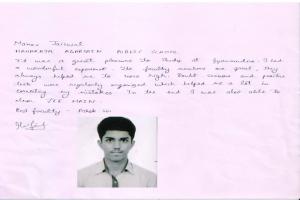 Manav Jaiswal
MAHARAJA AGARSAIN PUBLIC SCHOOL
It was a great pleasure to study at Gyanvandna. I had
a wonderful experience. The faculty members are great, they
always helped me to score high. Doubt classes and practice
test were regularly organized which helped me a lot in
correcting my mistakes. In the end I was also able to
clear JEE MAIN.
Best faculty - Ashok sir